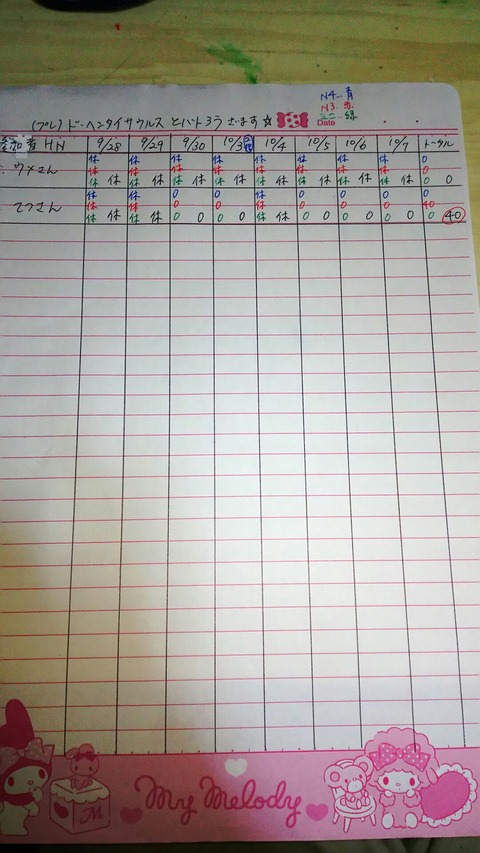 N4 青
N3 赤
ミニ 緑
(プレ) ド・ヘンタイサウルス とバトろうざます☆
Date
参加者 HN 9/28 9/29 9/30 10/3 10/4 10/5 10/6 10/7 トータル
休 休 休 休 休 休 休 休 0
ウメさん 休 休 休 休 休 休 休 休 0
休 休 休 休 休 休 休 休 休 休 休 休 休 休 休 休 0 0
休 休 0 0 休 0 0 0 0
てつさん 休 休 0 0 休 0 0 0 40
休 休 休 休 0 0 0 0 休 休 0 0 0 0 0 0 0 40
M
My Melody